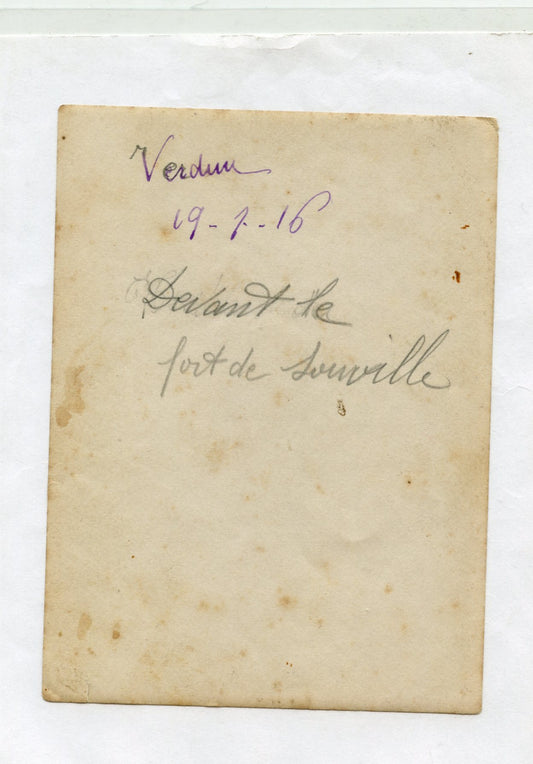 Verdun
19-7-16
Devant le
fort de Souville